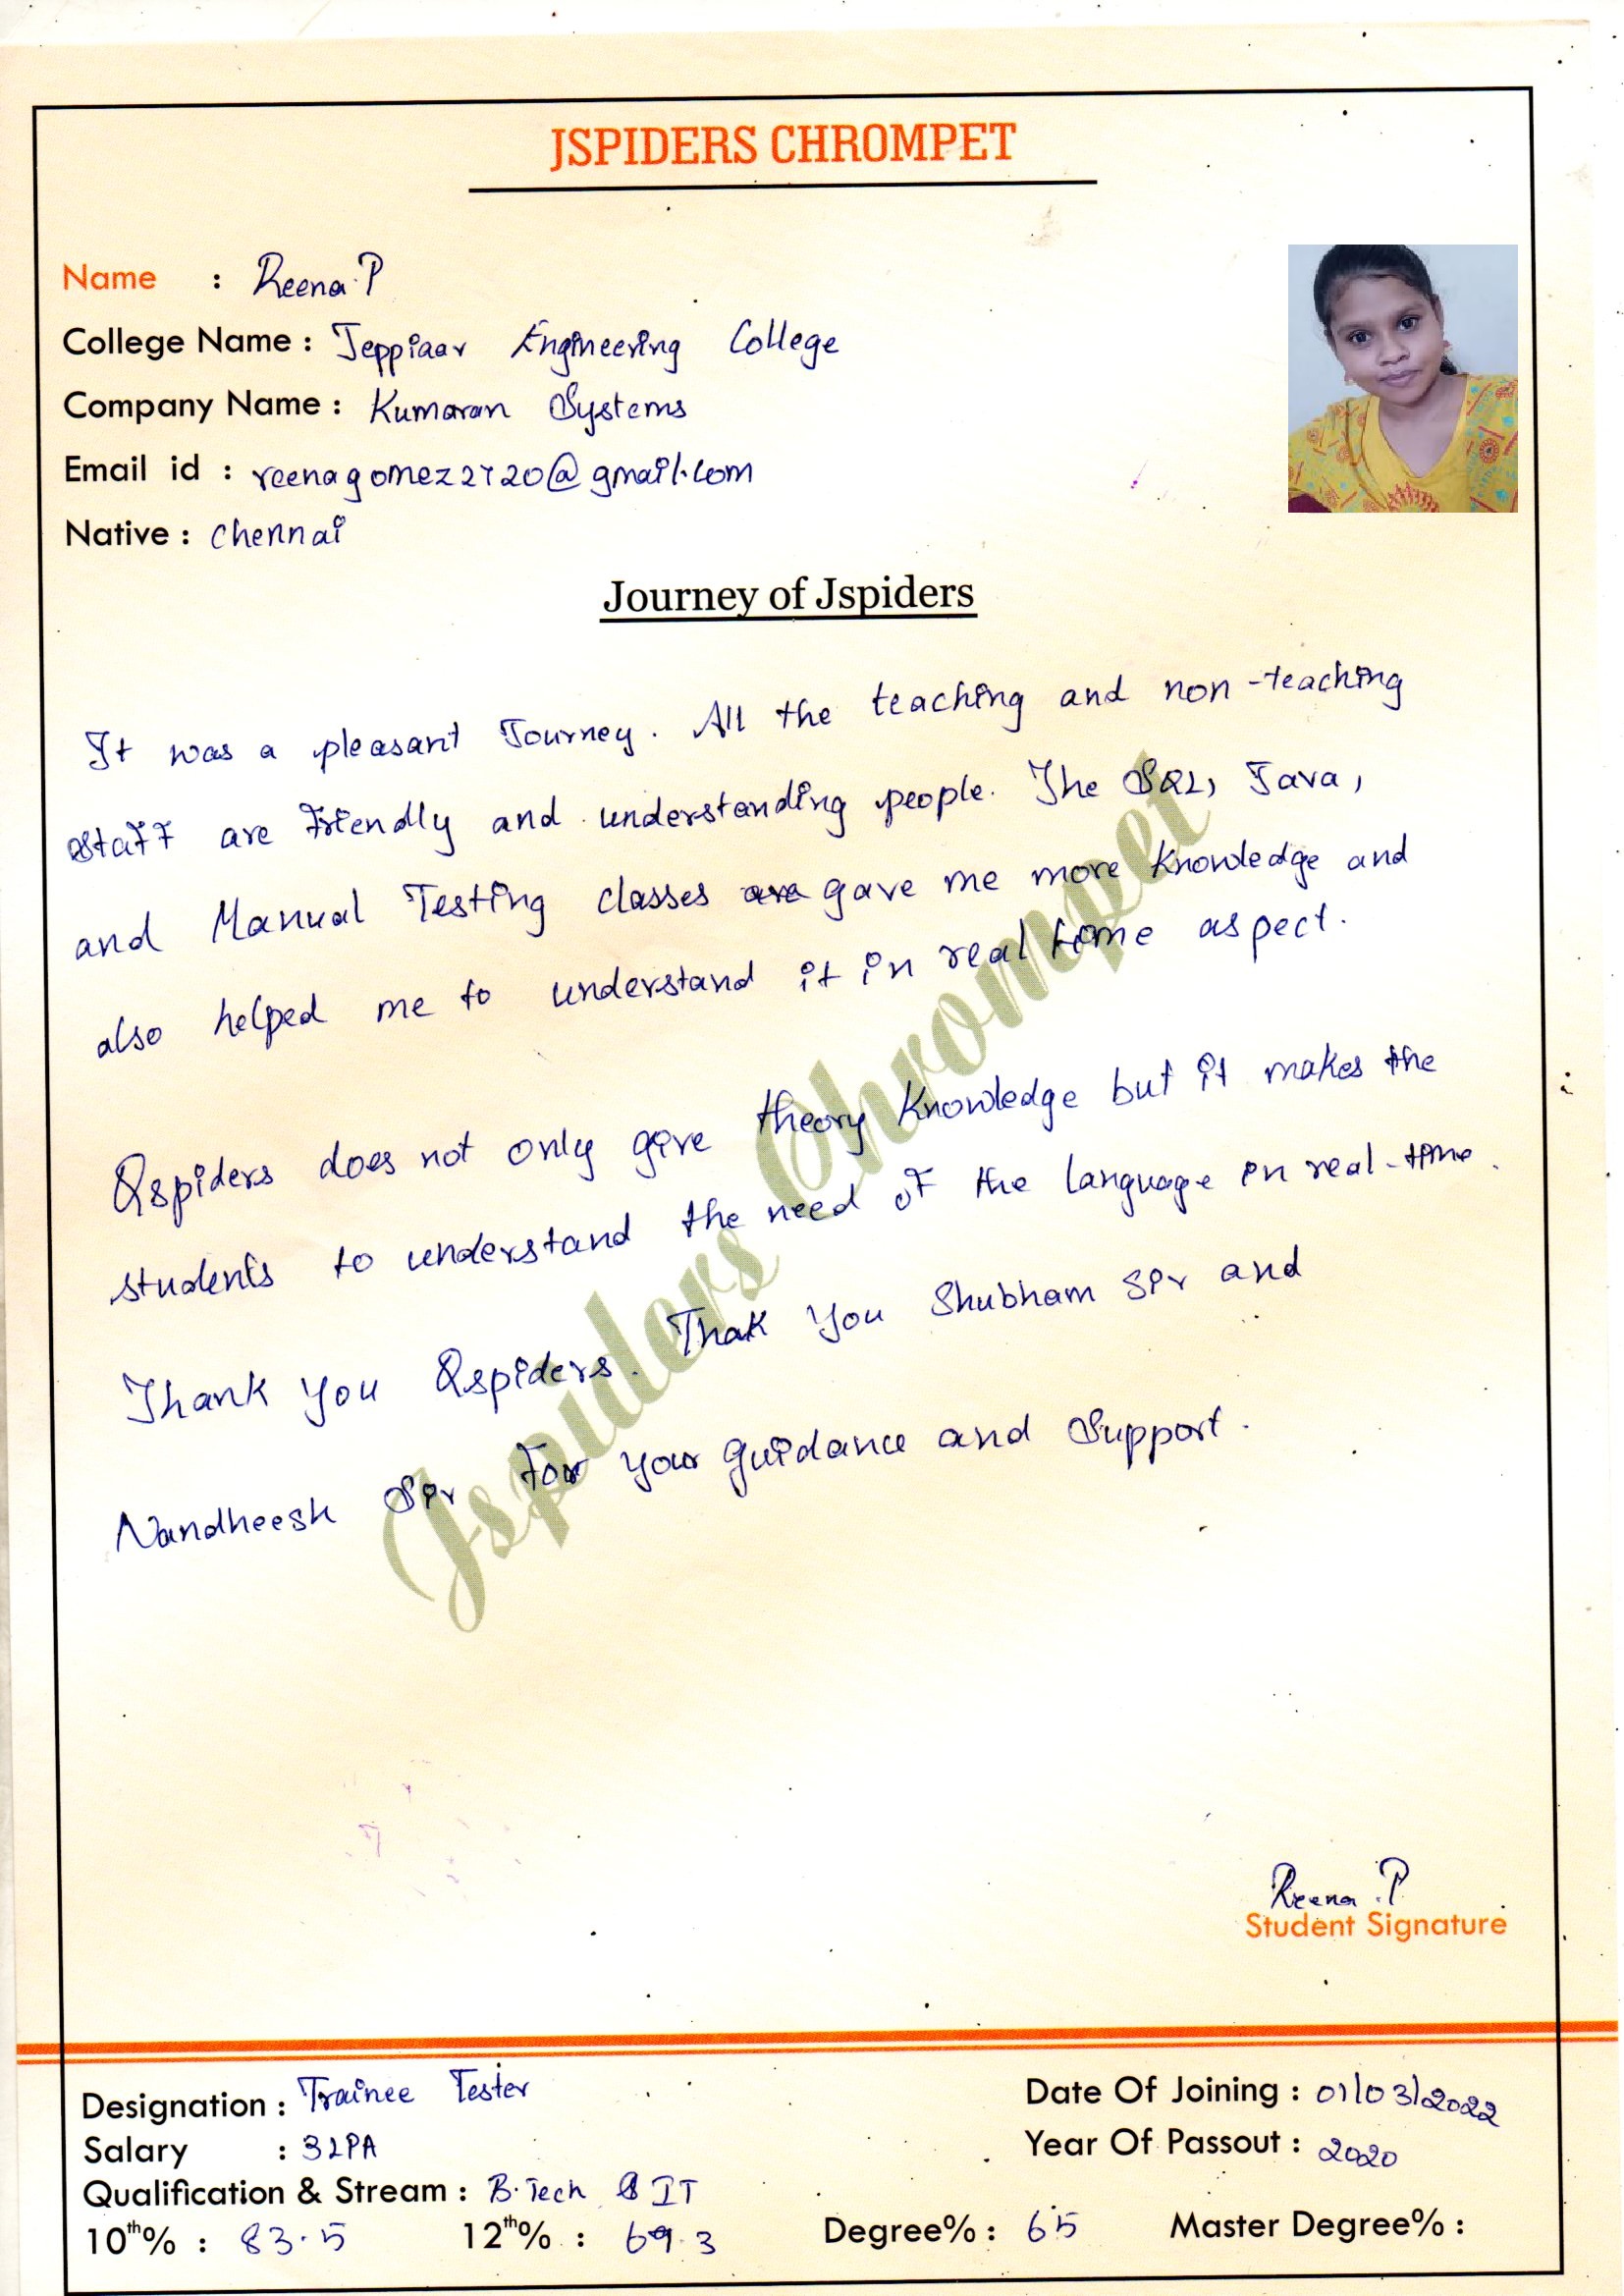 JSPIDERS CHROMPET
Name : Reena.P
College Name : Jeppiaar Engineering College
Company Name : Kumaran Systems
Email id : reenagomez2720@gmail.com
Native : Chennai
Journey of Jspiders
It was a pleasant Journey. All the teaching and non-teaching
staff are friendly and understanding people. The SQL, Java,
and Manual Testing classes are gave me more knowledge and
also helped me to understand it in real time aspect.
Qspiders does not only give theory knowledge but it makes the
students to understand the need of the language in real-time.
Thank You Qspiders. Thak You Shubham Sir and
Nandheesh Sir for your guidance and Support.
Jspiders Chrompet
Reena.P
Student Signature
Designation : Trainee Tester
Date Of Joining : 01/03/2022
Salary : 3LPA
Year Of Passout : 2020
Qualification & Stream : B.Tech & IT
10th% : 83.5 12th% : 69.3 Degree% : 65 Master Degree% :